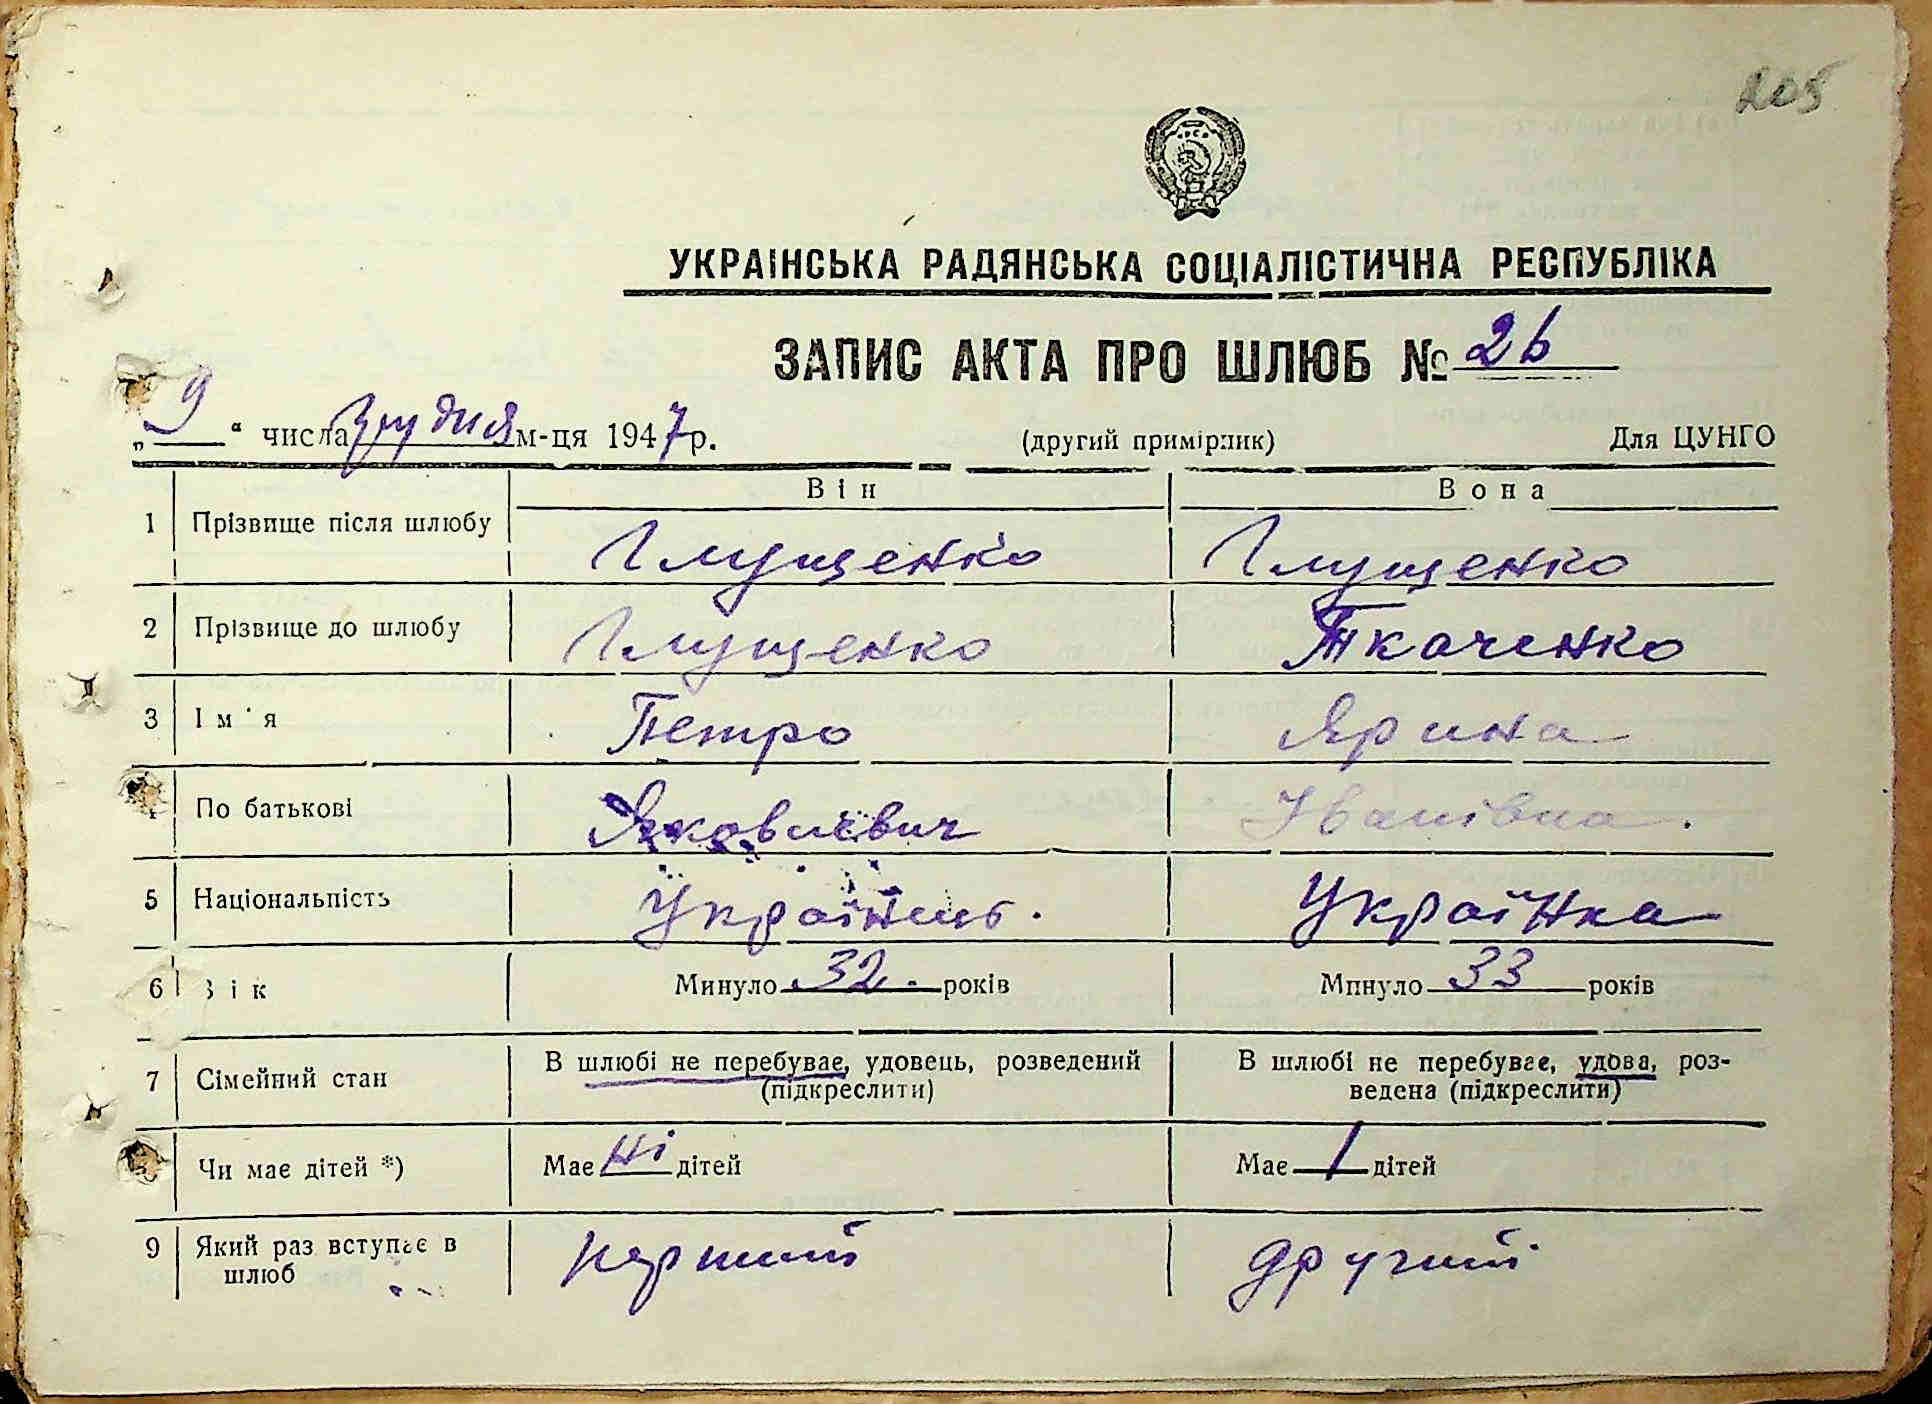 205
УКРАІНСЬКА РАДЯНСЬКА СОЦІАЛІСТИЧНА РЕСПУБЛІКА
ЗАПИС АКТА ПРО ШЛЮБ № 26
„ 9 “ числа грудня м-ця 1947 р. (другий примірник) Для ЦУНГО
Він Вона
1 Прізвище після шлюбу Глущенко Глущенко
2 Прізвище до шлюбу Глущенко Ткаченко
3 Ім'я Петро Ярина
По батькові Якович Іванівна.
5 Національність Українець. Українка
6 Вік Минуло 32. років Минуло 33 років
7 Сімейний стан В шлюбі не перебуває, удовець, розведений В шлюбі не перебуває, удова, роз-
(підкреслити) ведена (підкреслити)
Чи має дітей *) Має ні дітей Має 1 дітей
9 Який раз вступає в перший другий
шлюб